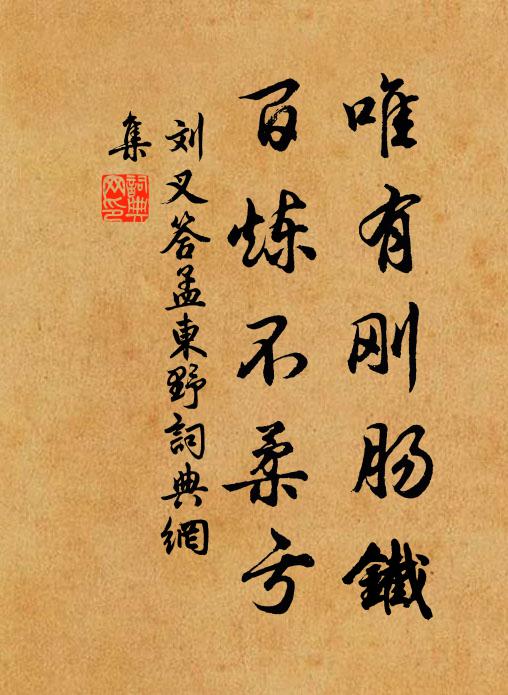 唯有刚肠鐵
百炼不柔亏
刘叉答孟東野詞典網
集
詞典网印